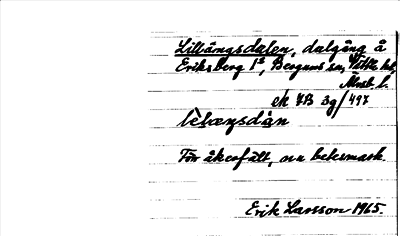 Lillängsdalen, dalgång å
Eriksberg 1², Bergums sn, Vättle hd,
Älvsb. l.
ek 7B 3g/497
Förr åkerfält, nu betesmark.
Erik Larsson 1965.